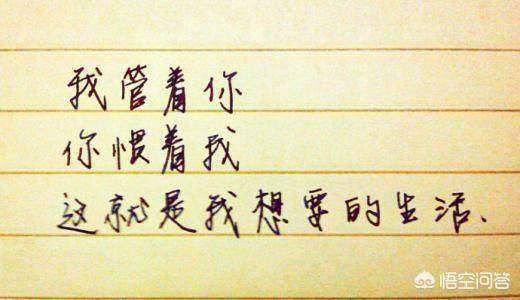 我管着你
你惯着我
这就是我想要的生活、
悟空问答